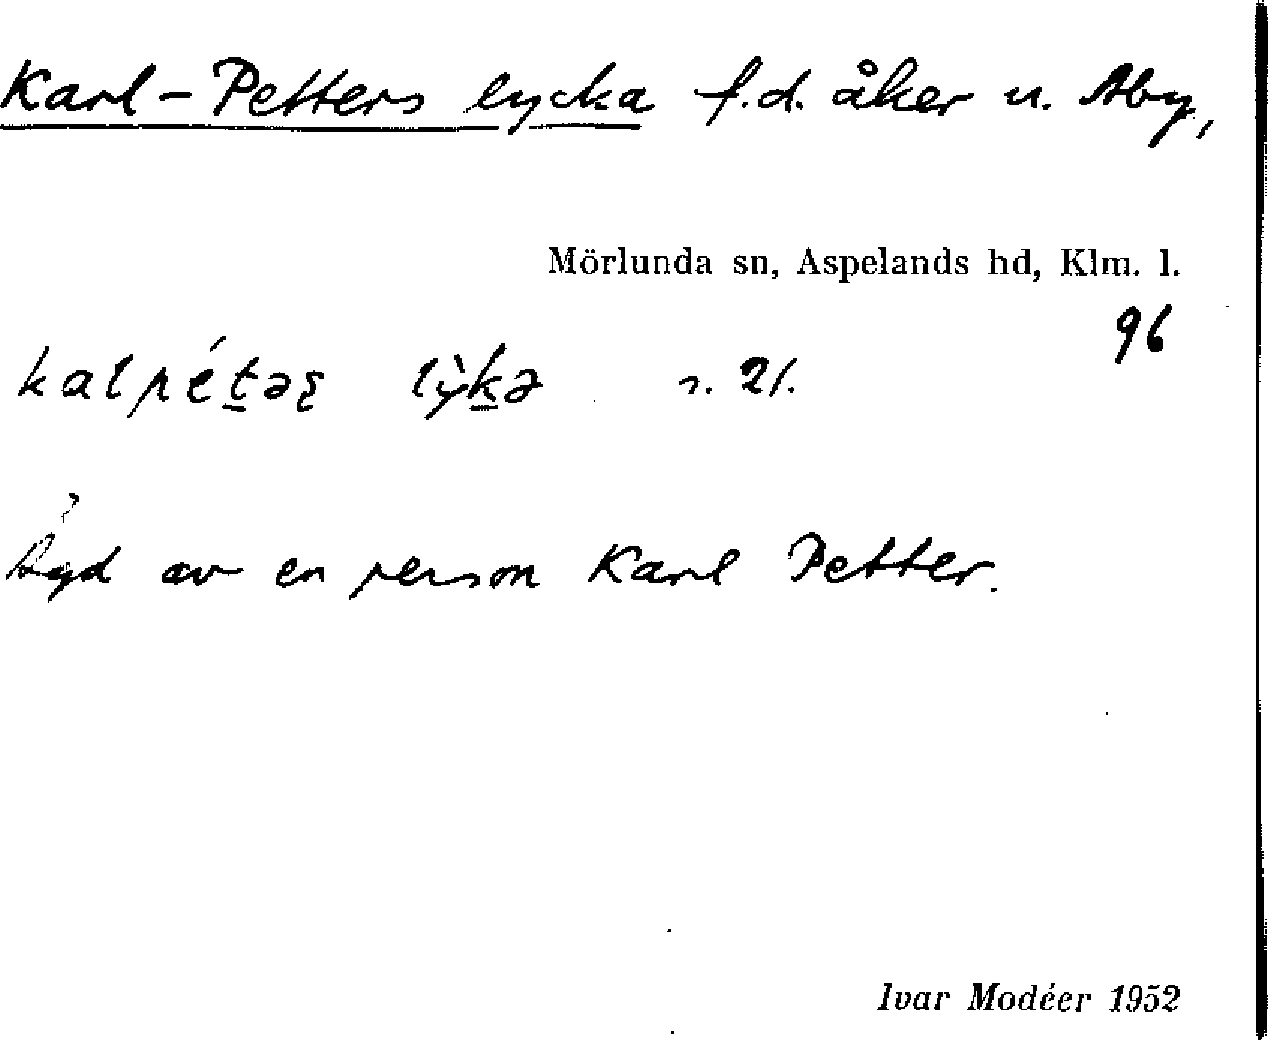 Karl-Petters lycka f.d. åker u. Åby,
Mörlunda sn, Aspelands hd, Klm. l.
96
kalpétəʂ lỳkə s. 21.
av en person Karl Petter.
Ivar Modéer 1952